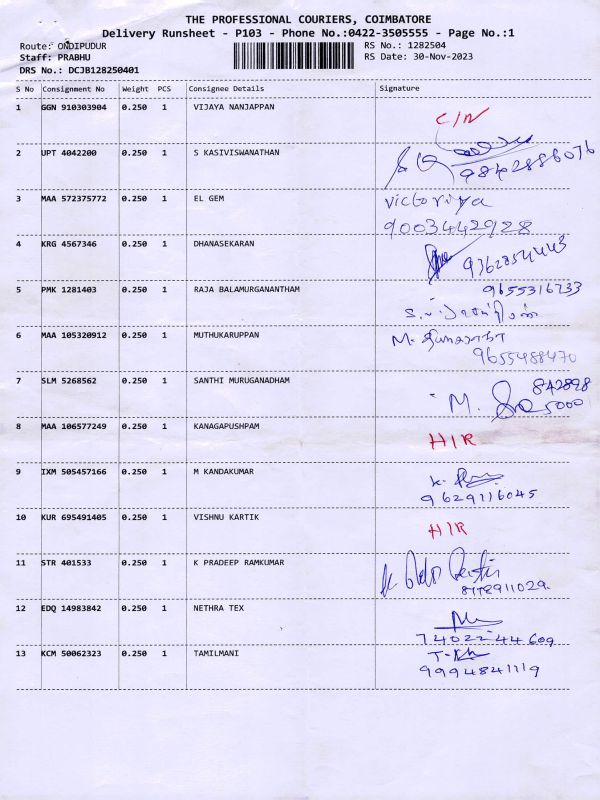 THE PROFESSIONAL COURIERS, COIMBATORE
Delivery Runsheet - P103 - Phone No.:0422-3505555 - Page No.:1
Route: ONDIPUDUR RS No.: 1282504
Staff: PRABHU RS Date: 30-Nov-2023
DRS No.: DCJB128250401
S No Consignment No Weight PCS Consignee Details Signature
1 GGN 910303904 0.250 1 VIJAYA NANJAPPAN
C/N
2 UPT 4042200 0.250 1 S KASIVISWANATHAN
9842886076
3 MAA 572375772 0.250 1 EL GEM victoriya
9003442928
4 KRG 4567346 0.250 1 DHANASEKARAN
5 PMK 1281403 0.250 1 RAJA BALAMURGANANTHAM 9655316733
6 MAA 105320912 0.250 1 MUTHUKARUPPAN M.
9655488470
7 SLM 5268562 0.250 1 SANTHI MURUGANADHAM 842898
M. 5000
8 MAA 106577249 0.250 1 KANAGAPUSHPAM
HIR
9 IXM 505457166 0.250 1 M KANDAKUMAR K.
9629116045
10 KUR 695491405 0.250 1 VISHNU KARTIK
HIR
11 STR 401533 0.250 1 K PRADEEP RAMKUMAR
12 EDQ 14983842 0.250 1 NETHRA TEX
7402244609
13 KCM 50062323 0.250 1 TAMILMANI
9994841119